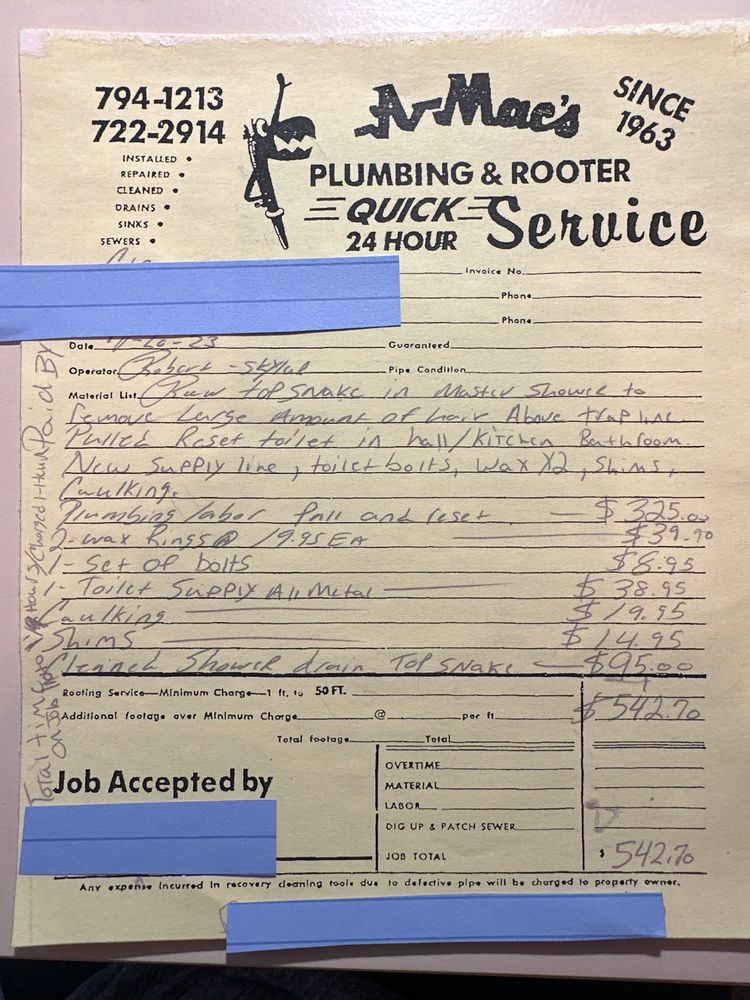 794-1213
722-2914
INSTALLED •
REPAIRED •
CLEANED •
DRAINS •
SINKS •
SEWERS •
A-Mac's
SINCE 1963
PLUMBING & ROOTER
QUICK Service
24 HOUR
Invoice No.
Phone
Phone
Date 23 Guaranteed
Operator Robert - Skylar Pipe Condition
Material List Run top snake in Master Shower to
remove Large Amount of hair Above trap line
Pulled Reset toilet in hall/kitchen Bathroom.
New Supply line, toilet bolts, wax X2, Shims,
Caulking.
Plumbing labor Pull and reset $325.00
2-wax Rings @ 19.95 EA $39.90
1- Set of bolts $8.95
1- Toilet Supply All Metal $38.95
Caulking $19.95
Shims $14.95
Cleaned Shower drain Top Snake $95.00
Rooting Service—Minimum Charge—1 ft. to 50 FT.
Additional footage over Minimum Charge @ per ft. $542.70
Total footage Total
Job Accepted by
OVERTIME
MATERIAL
LABOR
DIG UP & PATCH SEWER
JOB TOTAL $ 542.70
Any expense incurred in recovery cleaning tools due to defective pipe will be charged to property owner.
Paid By
Hours/Charged 1-Hour
Total time
on Job